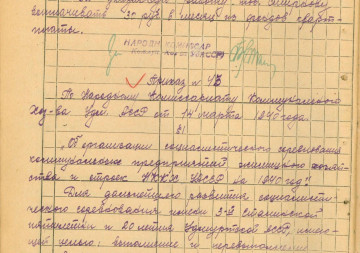 выплачивать 30 руб. в месяц из фонда зарп-
платы.
НАРОДН КОМИССАР
Приказ № 43
По Народному Комиссариату Коммунального
Хоз-ва Удм. АССР от 14 марта 1940 года.
§1
"Об организации социалистического соревнования
коммунальных предприятий, жилищного хозяй-
ства и строек НККХ УАССР на 1940 год".
Для дальнейшего развития социалисти-
ческого соревнования имени 3-й Сталинской
пятилетки и 20 летия Удмуртской АССР, имею-
щей целью: выполнение и перевыполнение